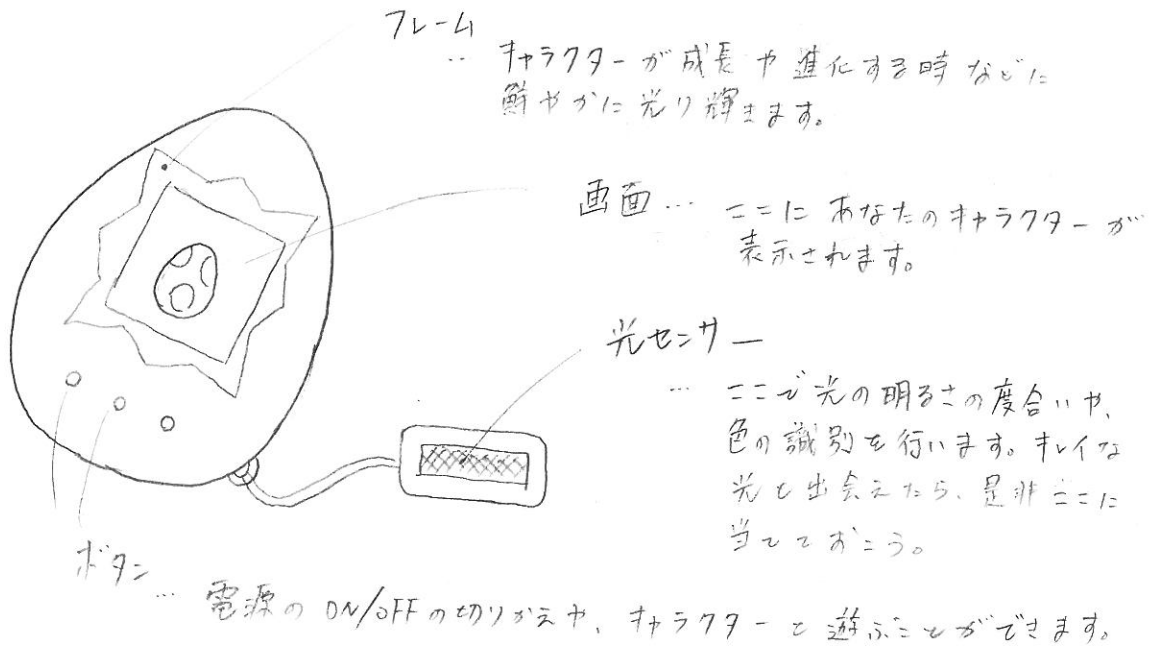 フレーム
‥ キャラクターが成長や進化する時などに
鮮やかに光り輝きます。
画面… ここにあなたのキャラクターが
表示されます。
光センサー
… ここで光の明るさの度合いや、
色の識別を行います。キレイな
光と出会えたら、是非ここに
当てておこう。
ボタン
… 電源のON/OFFの切りかえや、キャラクターと遊ぶことができます。